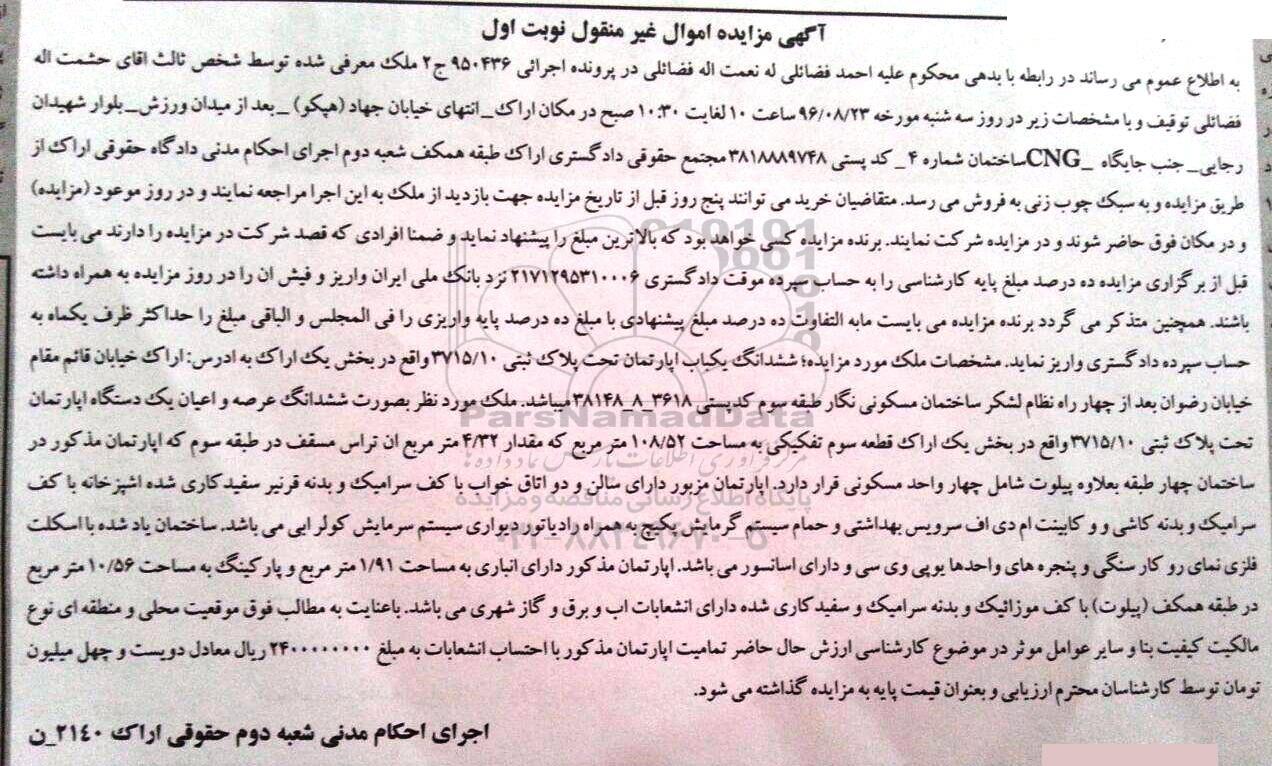 آگهی مزایده اموال غیر منقول نوبت اول
به اطلاع عموم می رساند در رابطه با بدهی محکوم علیه احمد فضائلی له نعمت اله فضائلی در پرونده اجرائی ۹۵۰۴۳۶ ج۲ ملک معرفی شده توسط شخص ثالث اقای حشمت اله
فضائلی توقیف و با مشخصات زیر در روز سه شنبه مورخه ۹۶/۰۸/۲۳ ساعت ۱۰ لغایت ۱۰:۳۰ صبح در مکان اراک_انتهای خیابان جهاد (هپکو) _ بعد از میدان ورزش_ بلوار شهیدان
رجایی_ جنب جایگاه _CNG ساختمان شماره ۴_ کد پستی ۳۸۱۸۸۸۹۷۴۸ مجتمع حقوقی دادگستری اراک طبقه همکف شعبه دوم اجرای احکام مدنی دادگاه حقوقی اراک از
طریق مزایده و به سبک چوب زنی به فروش می رسد. متقاضیان خرید می توانند پنج روز قبل از تاریخ مزایده جهت بازدید از ملک به این اجرا مراجعه نمایند و در روز موعود (مزایده)
و در مکان فوق حاضر شوند و در مزایده شرکت نمایند. برنده مزایده کسی خواهد بود که بالاترین مبلغ را پیشنهاد نماید و ضمنا افرادی که قصد شرکت در مزایده را دارند می بایست
قبل از برگزاری مزایده ده درصد مبلغ پایه کارشناسی را به حساب سپرده موقت دادگستری ۲۱۷۱۲۹۵۳۱۰۰۰۶ نزد بانک ملی ایران واریز و فیش ان را در روز مزایده به همراه داشته
باشند. همچنین متذکر می گردد برنده مزایده می بایست مابه التفاوت ده درصد مبلغ پیشنهادی با مبلغ ده درصد پایه واریزی را فی المجلس و الباقی مبلغ را حداکثر ظرف یکماه به
حساب سپرده دادگستری واریز نماید. مشخصات ملک مورد مزایده؛ ششدانگ یکباب اپارتمان تحت پلاک ثبتی ۳۷۱۵/۱۰ واقع در بخش یک اراک به ادرس: اراک خیابان قائم مقام
خیابان رضوان بعد از چهار راه نظام لشکر ساختمان مسکونی نگار طبقه سوم کدپستی ۳۶۱۸_۸_۳۸۱۴۸ میباشد. ملک مورد نظر بصورت ششدانگ عرصه و اعیان یک دستگاه اپارتمان
تحت پلاک ثبتی ۳۷۱۵/۱۰ واقع در بخش یک اراک قطعه سوم تفکیکی به مساحت ۱۰۸/۵۲ متر مربع که مقدار ۴/۳۲ متر مربع ان تراس مسقف در طبقه سوم که اپارتمان مذکور در
ساختمان چهار طبقه بعلاوه پیلوت شامل چهار واحد مسکونی قرار دارد. اپارتمان مزبور دارای سالن و دو اتاق خواب با کف سرامیک و بدنه قرنیز سفیدکاری شده اشپزخانه با کف
سرامیک و بدنه کاشی و و کابینت ام دی اف سرویس بهداشتی و حمام سیستم گرمایش پکیج به همراه رادیاتور دیواری سیستم سرمایش کولر ابی می باشد. ساختمان یاد شده با اسکلت
فلزی نمای رو کار سنگی و پنجره های واحدها یوپی وی سی و دارای اسانسور می باشد. اپارتمان مذکور دارای انباری به مساحت ۱/۹۱ متر مربع و پارکینگ به مساحت ۱۰/۵۶ متر مربع
در طبقه همکف (پیلوت) با کف موزائیک و بدنه سرامیک و سفیدکاری شده دارای انشعابات اب و برق و گاز شهری می باشد. باعنایت به مطالب فوق موقعیت محلی و منطقه ای نوع
مالکیت کیفیت بنا و سایر عوامل موثر در موضوع کارشناسی ارزش حال حاضر تمامیت اپارتمان مذکور با احتساب انشعابات به مبلغ ۲۴۰۰۰۰۰۰۰۰ ریال معادل دویست و چهل میلیون
تومان توسط کارشناسان محترم ارزیابی و بعنوان قیمت پایه به مزایده گذاشته می شود.
اجرای احکام مدنی شعبه دوم حقوقی اراک ۲۱۴۰_ن
ParsNamadData
مرکز فرآوری اطلاعات پارس نماد داده ها
پایگاه اطلاع رسانی مناقصه و مزایده
۰۲۱-۸۸۳۴۹۶۷۰-۵